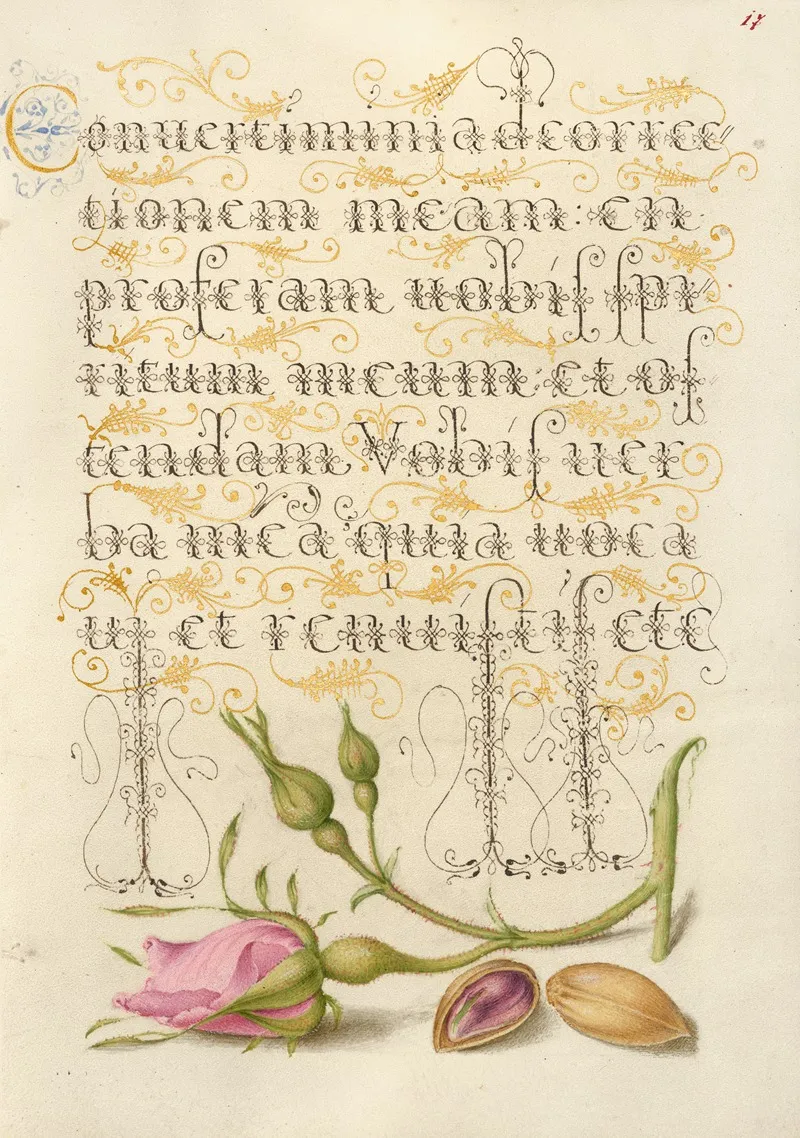 17
Conuertimini ad correc
tionem meam: en
proferam uobis spi
ritum meum: et os
tendam Vobis uer
ba mea quia uoca
ui et renuistis ete